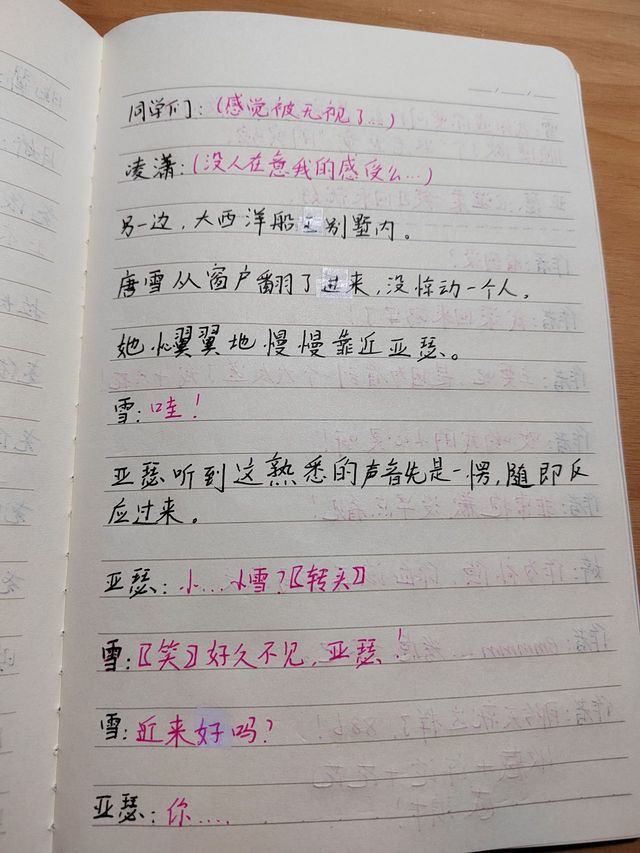 同学们：(感觉被无视了…)
凌潇：(没人在意我的感受么…)
另一边，大西洋船王别墅内。
唐雪从窗户翻了进来，没惊动一个人。
她小心翼翼地慢慢靠近亚瑟。
雪：哇！
亚瑟听到这熟悉的声音先是一愣，随即反
应过来。
亚瑟：小…小雪？〖转头〗
雪：〖笑〗好久不见，亚瑟！
雪：近来好吗？
亚瑟：你….